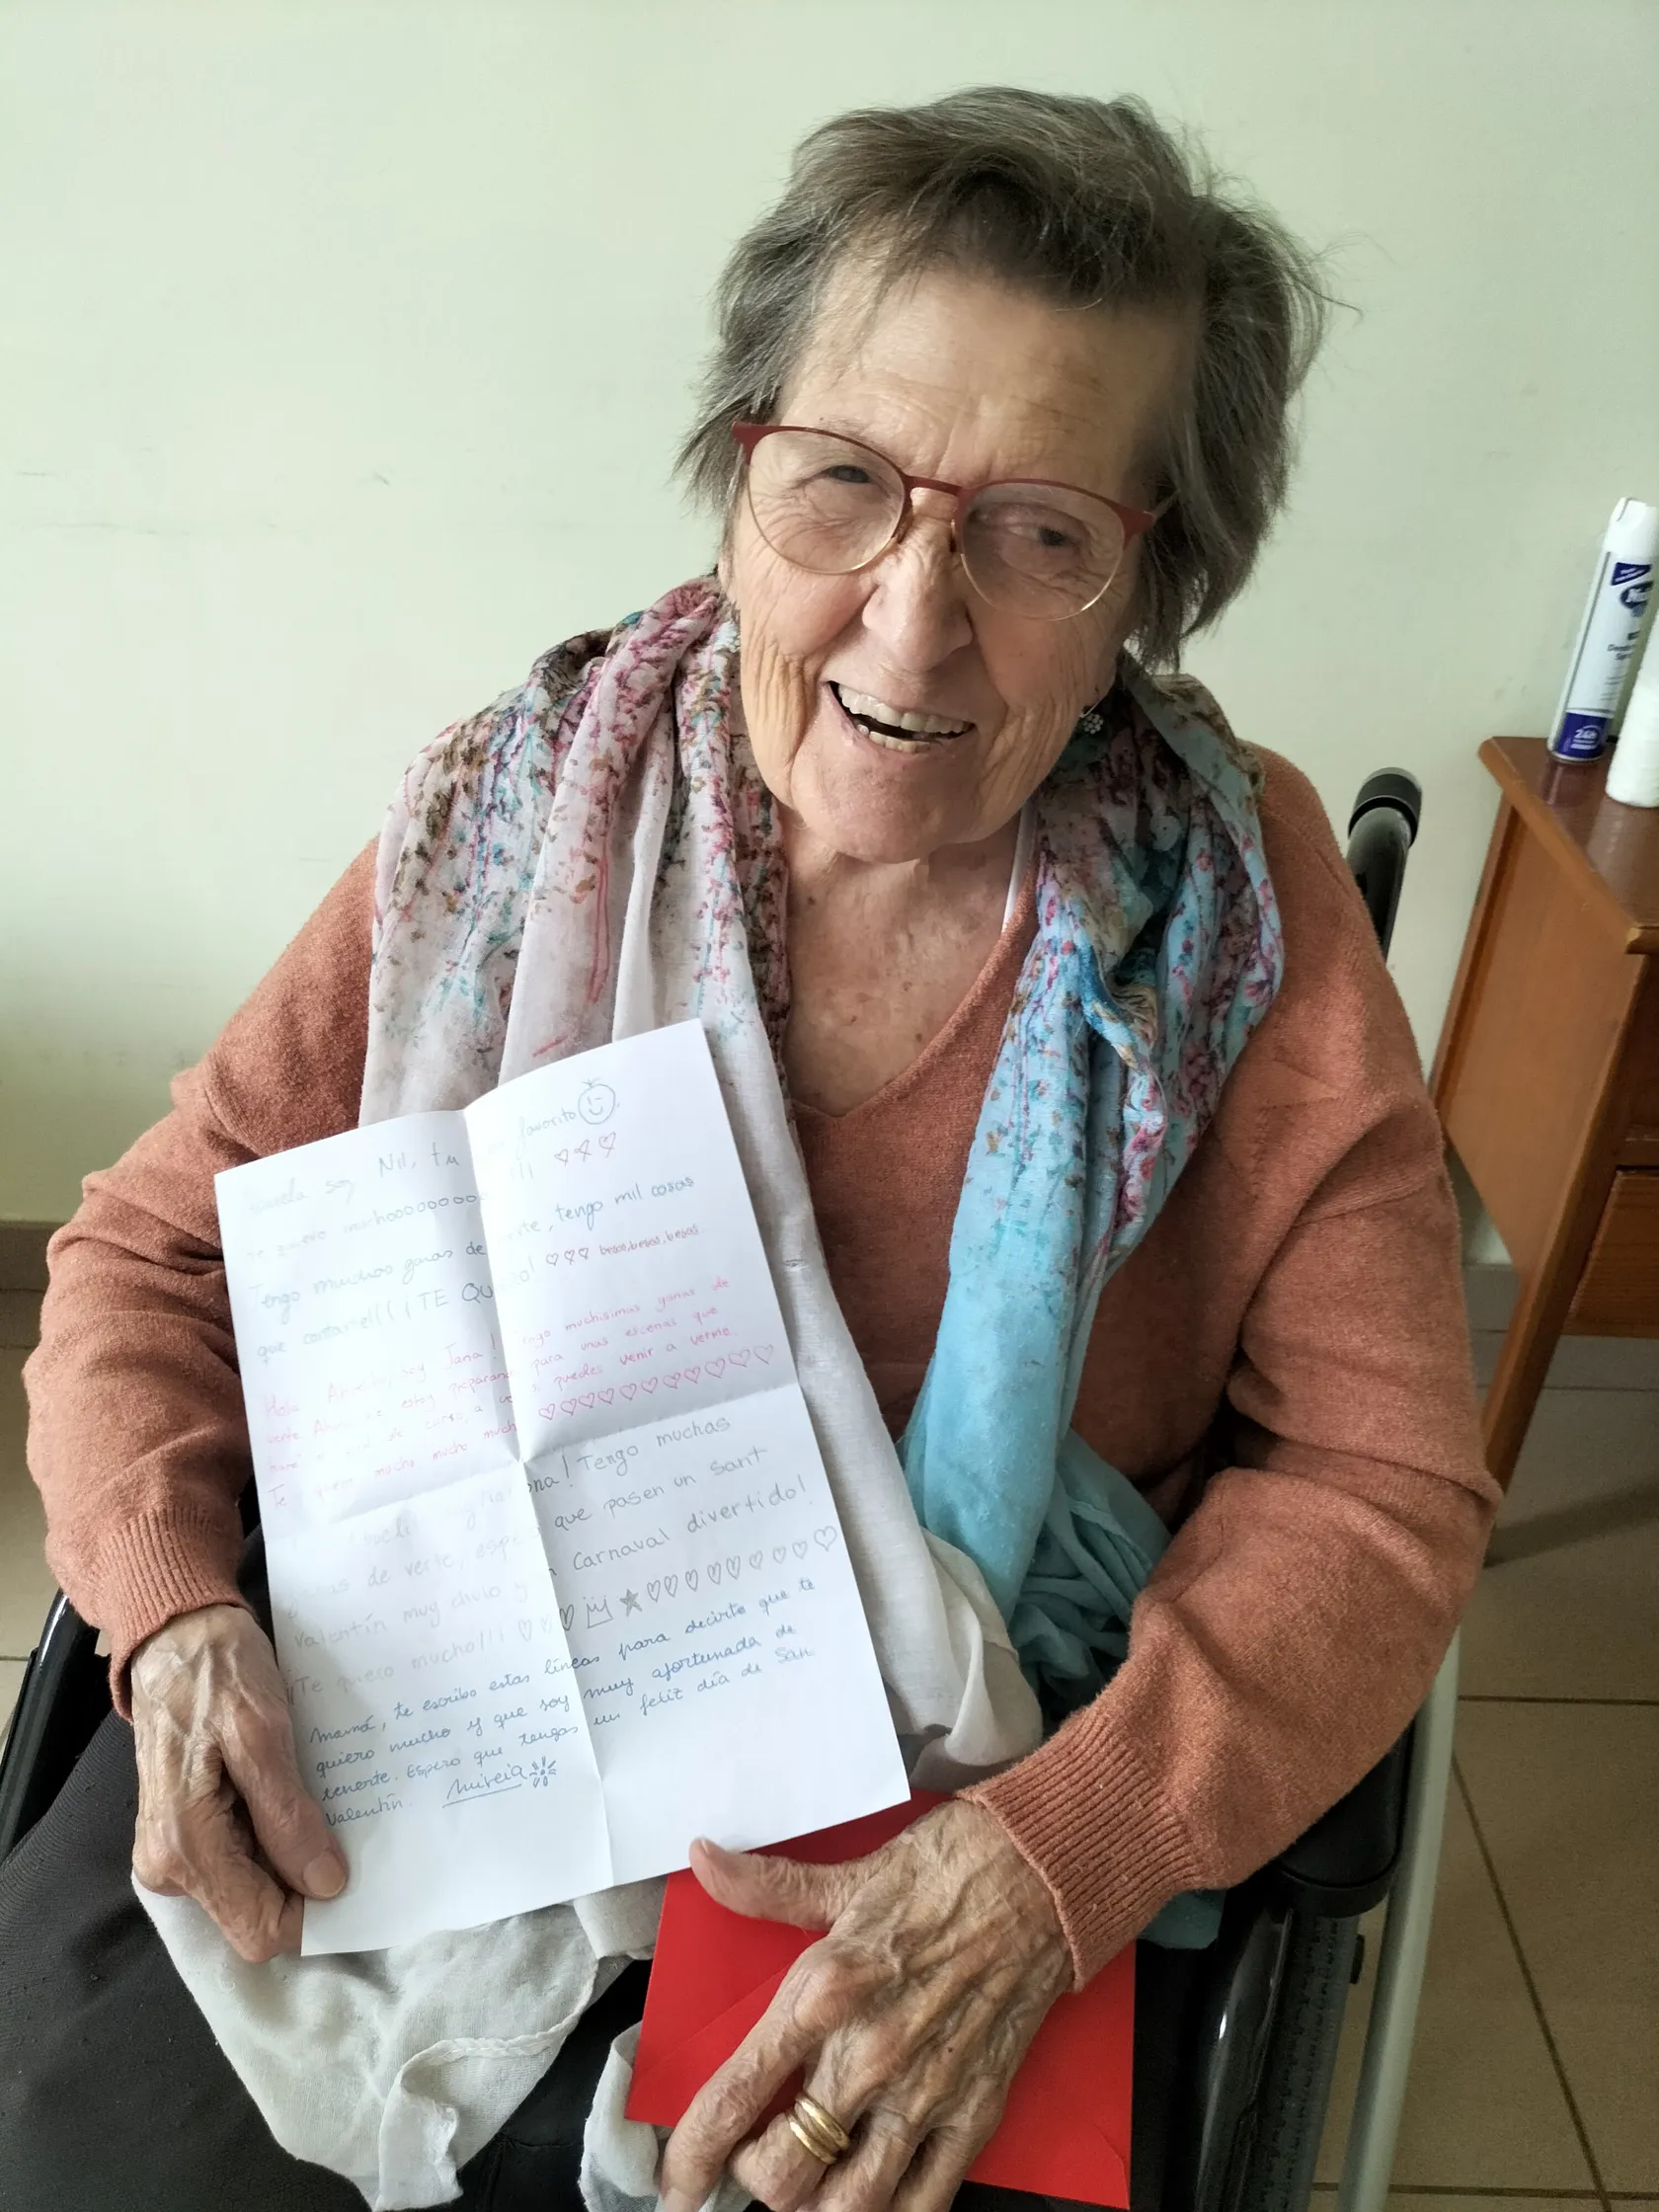 soy Nil, tu favorito
te quiero muchoooooooo !!! 
Tengo muchas ganas de verte, tengo mil cosas
que contarte!!! ¡TE QUIERO! besos, besos, besos
Hola Abuela, soy Jana! Tengo muchísimas ganas de
verte. Ahora estoy preparando para unas escenas que
haré a final de curso, a ver si puedes venir a verme.
Te quiero mucho mucho mucho
Tengo muchas
ganas de verte, espero que pasen un Sant
Valentín muy chulo y un Carnaval divertido!
¡¡Te quiero mucho!!¡
Mamá, te escribo estas líneas para decirte que te
quiero mucho y que soy muy afortunada de
tenerte. Espero que tengas un feliz día de San
Valentín. Mireia
24h